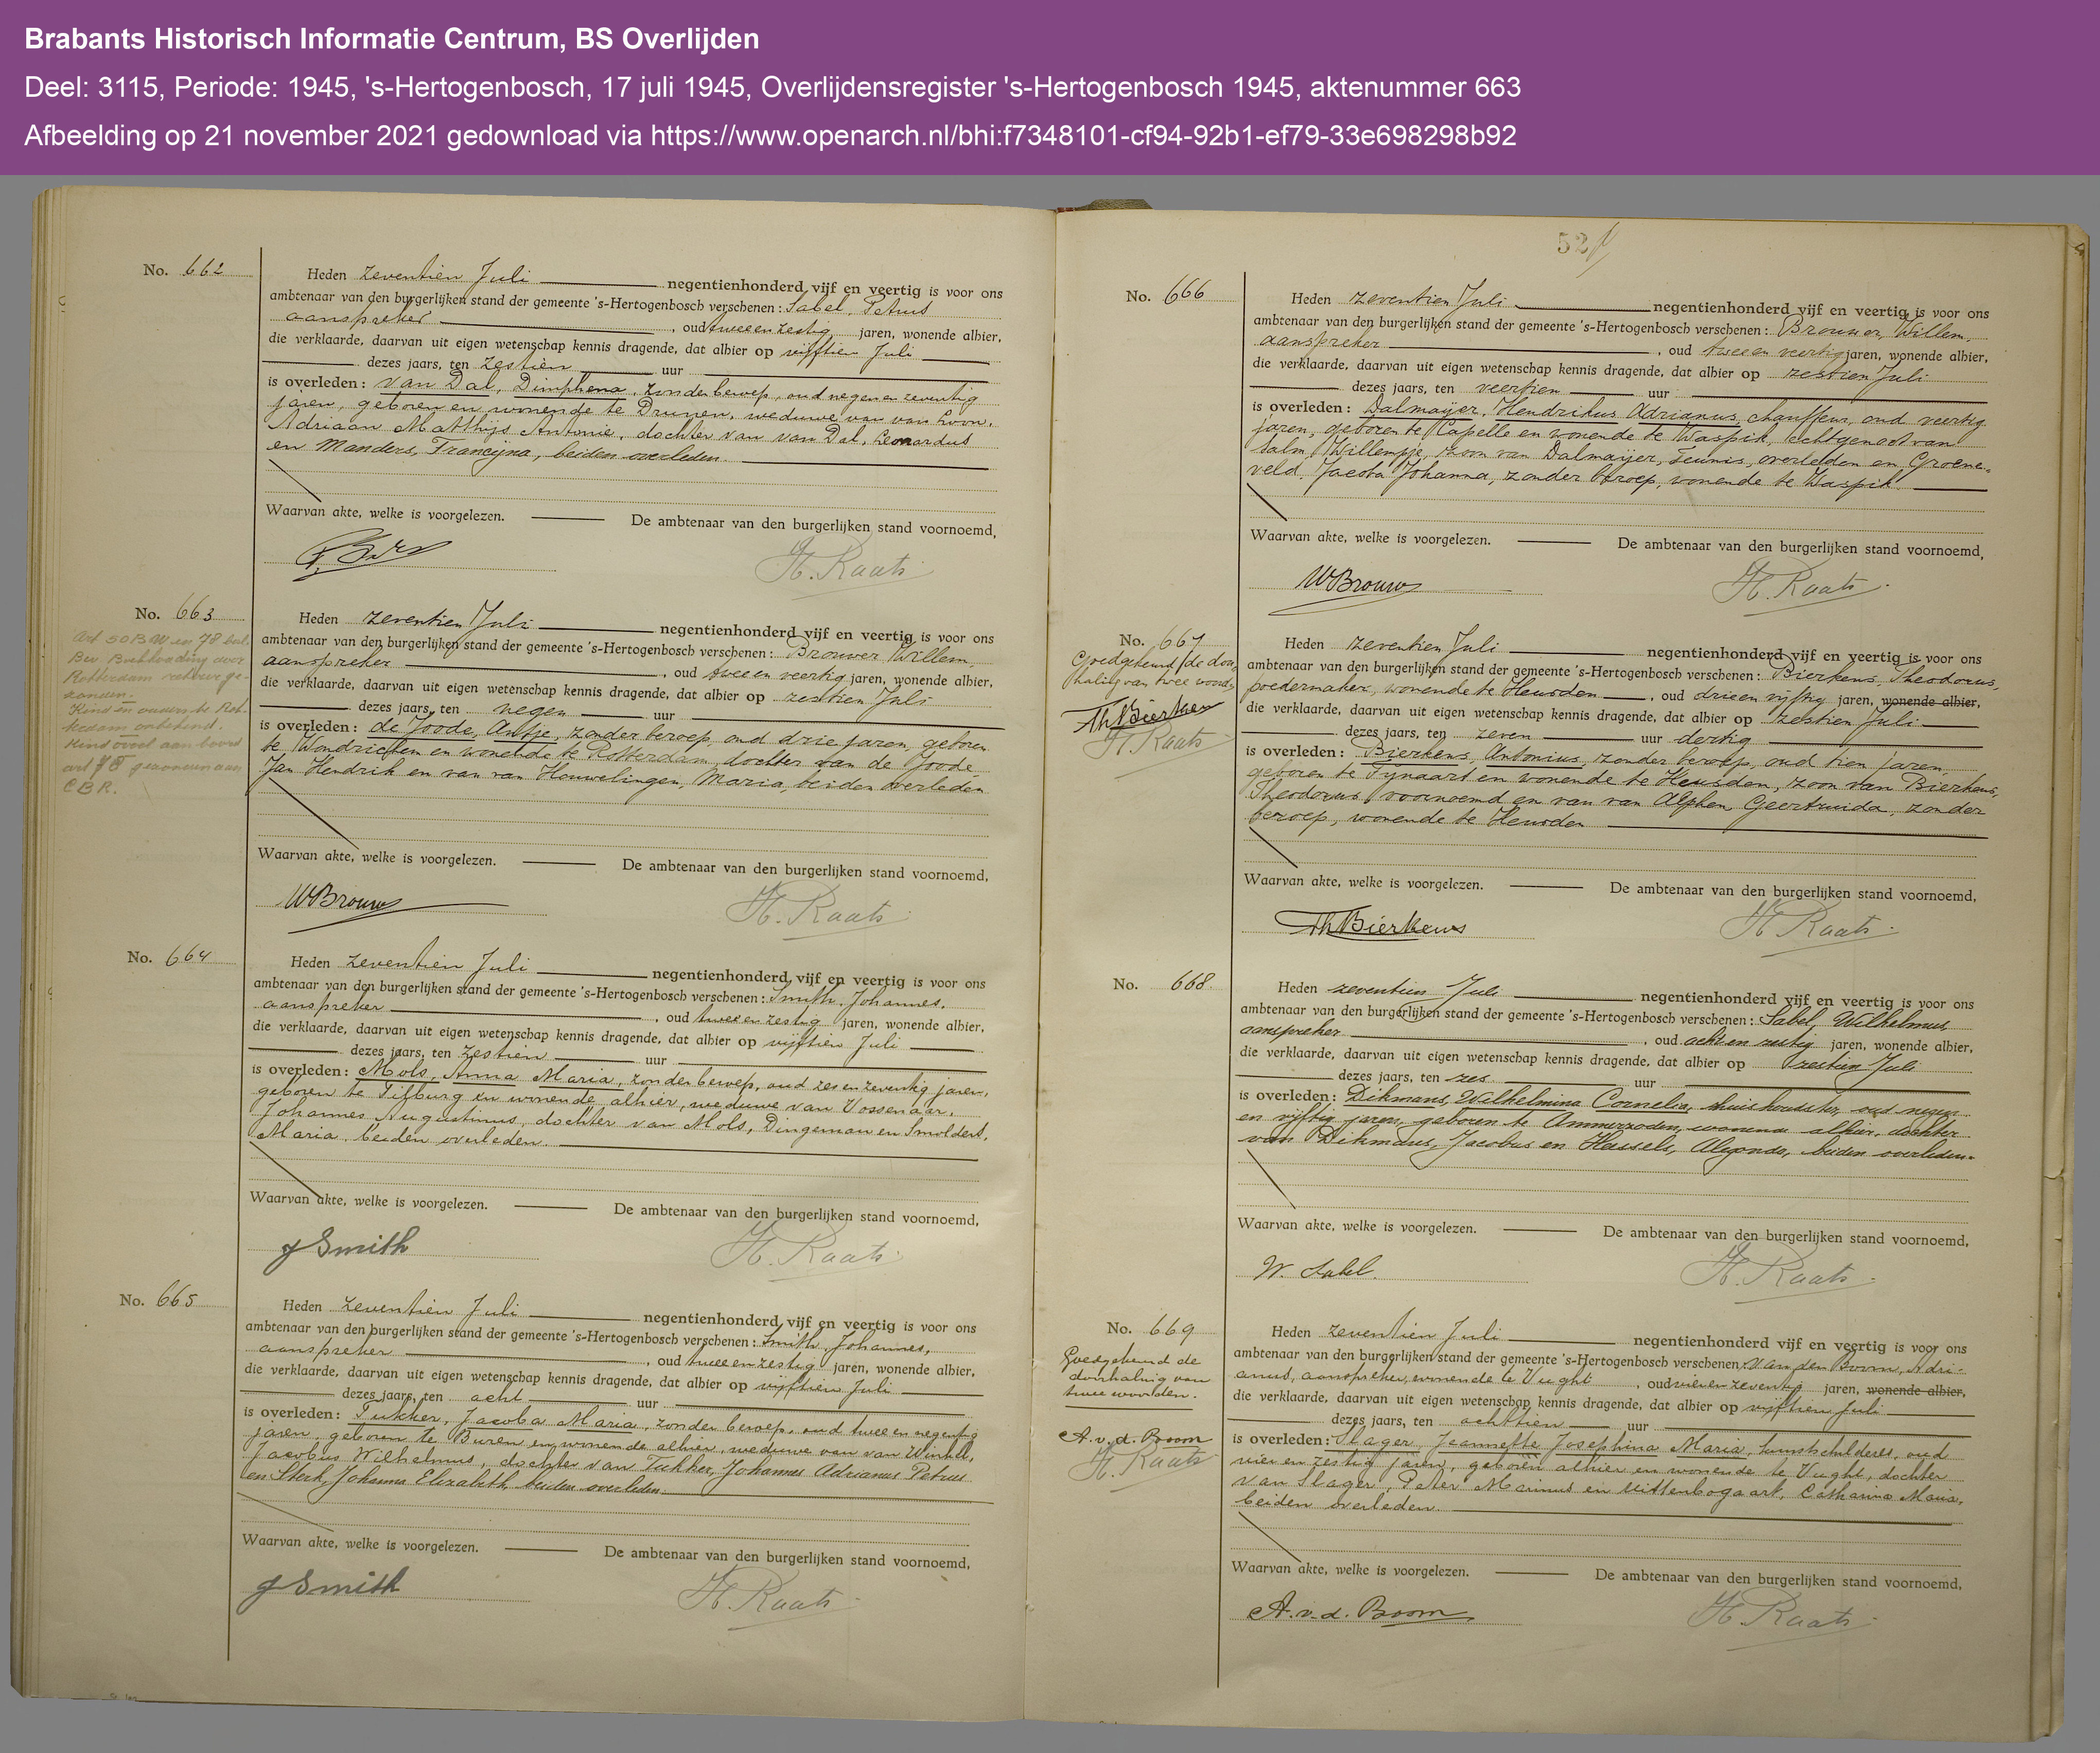 Brabants Historisch Informatie Centrum, BS Overlijden
Deel: 3115, Periode: 1945, 's-Hertogenbosch, 17 juli 1945, Overlijdensregister 's-Hertogenbosch 1945, aktenummer 663
Afbeelding op 21 november 2021 gedownload via https://www.openarch.nl/bhi:f7348101-cf94-92b1-ef79-33e698298b92
No. 662
Heden zeventien Juli negentienhonderd vijf en veertig is voor ons
ambtenaar van den burgerlijken stand der gemeente 's-Hertogenbosch verschenen: Sabel, Petrus
aanspreker, oud twee en zestig jaren, wonende alhier,
die verklaarde, daarvan uit eigen wetenschap kennis dragende, dat alhier op vijftien Juli
dezes jaars, ten zestien uur
is overleden: van Dal, Dimphena, zonder beroep, oud negen en zeventig
jaren, geboren en wonende te Drunen, weduwe van van Loon,
Adriaan Matthijs Antonie, dochter van van Dal, Leonardus
en Manders, Francijna, beiden overleden.
Waarvan akte, welke is voorgelezen. De ambtenaar van den burgerlijken stand voornoemd,
H. Raats
No. 663
Art 50 BW en 78 bal.
Rotterdam
Kind en ouders te Rot-
terdam onbekend.
C B R.
Heden zeventien Juli negentienhonderd vijf en veertig is voor ons
ambtenaar van den burgerlijken stand der gemeente 's-Hertogenbosch verschenen: Brouwer Willem,
aanspreker, oud twee en veertig jaren, wonende alhier,
die verklaarde, daarvan uit eigen wetenschap kennis dragende, dat alhier op zestien Juli
dezes jaars, ten negen uur
is overleden: de Joode, Antje, zonder beroep, oud drie jaren, geboren
te Wondrichen en wonende te Rotterdam, dochter van de Joode,
Jan Hendrik en van van Houwelingen, Maria, beiden overleden
Waarvan akte, welke is voorgelezen. De ambtenaar van den burgerlijken stand voornoemd,
WBrouw H. Raats
No. 664
Heden zeventien Juli negentienhonderd vijf en veertig is voor ons
ambtenaar van den burgerlijken stand der gemeente 's-Hertogenbosch verschenen: Smith, Johannes,
aanspreker, oud twee en zestig jaren, wonende alhier,
die verklaarde, daarvan uit eigen wetenschap kennis dragende, dat alhier op vijftien Juli
dezes jaars, ten zestien uur
is overleden: Mols, Anna Maria, zonder beroep, oud zes en zeventig jaren,
geboren te Tilburg en wonende alhier, weduwe van Vossenaar,
Johannes Augustinus, dochter van Mols, Dingeman en Smolders,
Maria, beiden overleden.
Waarvan akte, welke is voorgelezen. De ambtenaar van den burgerlijken stand voornoemd,
J Smith H. Raats
No. 665
Heden zeventien Juli negentienhonderd vijf en veertig is voor ons
ambtenaar van den burgerlijken stand der gemeente 's-Hertogenbosch verschenen: Smith, Johannes,
aanspreker, oud twee en zestig jaren, wonende alhier,
die verklaarde, daarvan uit eigen wetenschap kennis dragende, dat alhier op vijftien Juli
dezes jaars, ten acht uur
is overleden: Tukker, Jacoba Maria, zonder beroep, oud twee en negentig
jaren, geboren te Buren en wonende alhier, weduwe van van Winkel,
Jacobus Wilhelmus, dochter van Tukker, Johannes Adrianus Petrus
en Sterk, Johanna Elizabeth, beiden overleden.
Waarvan akte, welke is voorgelezen. De ambtenaar van den burgerlijken stand voornoemd,
J Smith H. Raats
52
No. 666
Heden zeventien Juli negentienhonderd vijf en veertig is voor ons
ambtenaar van den burgerlijken stand der gemeente 's-Hertogenbosch verschenen: Brouwer, Willem,
aanspreker, oud twee en veertig jaren, wonende alhier,
die verklaarde, daarvan uit eigen wetenschap kennis dragende, dat alhier op zestien Juli
dezes jaars, ten veertien uur
is overleden: Dalmaijer, Hendrikus Adrianus, chauffeur, oud veertig
jaren, geboren te Capelle en wonende te Waspik, echtgenoot van
Salm, Willempje, zoon van Dalmaijer, Teunis, overleden en Groene-
veld, Jacoba Johanna, zonder beroep, wonende te Waspik.
Waarvan akte, welke is voorgelezen. De ambtenaar van den burgerlijken stand voornoemd,
WBrouw H. Raats
No. 667
Goedgekeurd de door-
haling van twee woorden
Th Bierkens
H. Raats
Heden zeventien Juli negentienhonderd vijf en veertig is voor ons
ambtenaar van den burgerlijken stand der gemeente 's-Hertogenbosch verschenen: Bierkens, Theodorus,
wonende te Heusden, oud drie en vijftig jaren, wonende alhier,
die verklaarde, daarvan uit eigen wetenschap kennis dragende, dat alhier op zestien Juli
dezes jaars, ten zeven uur dertig
is overleden: Bierkens, Antonius, zonder beroep, oud tien jaren,
geboren te Fijnaart en wonende te Heusden, zoon van Bierkens,
Theodorus, voornoemd en van van Alphen, Geertruida, zonder
beroep, wonende te Heusden
Waarvan akte, welke is voorgelezen. De ambtenaar van den burgerlijken stand voornoemd,
Th Bierkens H. Raats
No. 668
Heden zeventien Juli negentienhonderd vijf en veertig is voor ons
ambtenaar van den burgerlijken stand der gemeente 's-Hertogenbosch verschenen: Sabel, Wilhelmus
aanspreker, oud acht en zestig jaren, wonende alhier,
die verklaarde, daarvan uit eigen wetenschap kennis dragende, dat alhier op zestien Juli
dezes jaars, ten zes uur
is overleden: Dikmans, Wilhelmina Cornelia, huishoudster, oud negen
en vijftig jaren, geboren te Ammerzoden, wonend alhier, dochter
van Dikmans, Jacobus en Hassels, beiden overleden.
Waarvan akte, welke is voorgelezen. De ambtenaar van den burgerlijken stand voornoemd,
W. Sabel. H. Raats
No. 669
Goedgekeurd de
doorhaling van
twee woorden.
A. v. d. Boom
H. Raats
Heden zeventien Juli negentienhonderd vijf en veertig is voor ons
ambtenaar van den burgerlijken stand der gemeente 's-Hertogenbosch verschenen: van den Boom, Adri-
anus, aanspreker, wonende te Vught, oud vier en zeventig jaren, wonende alhier,
die verklaarde, daarvan uit eigen wetenschap kennis dragende, dat alhier op vijftien Juli
dezes jaars, ten achttien uur
is overleden: Slager, Jeannette Josephina Maria, kunstschilderes, oud
vier en zestig jaren, geboren alhier en wonende te Vught, dochter
van Slager, Peter Marinus en Uittenbogaart, Catharina Maria,
beiden overleden.
Waarvan akte, welke is voorgelezen. De ambtenaar van den burgerlijken stand voornoemd,
A. v. d. Boom H. Raats